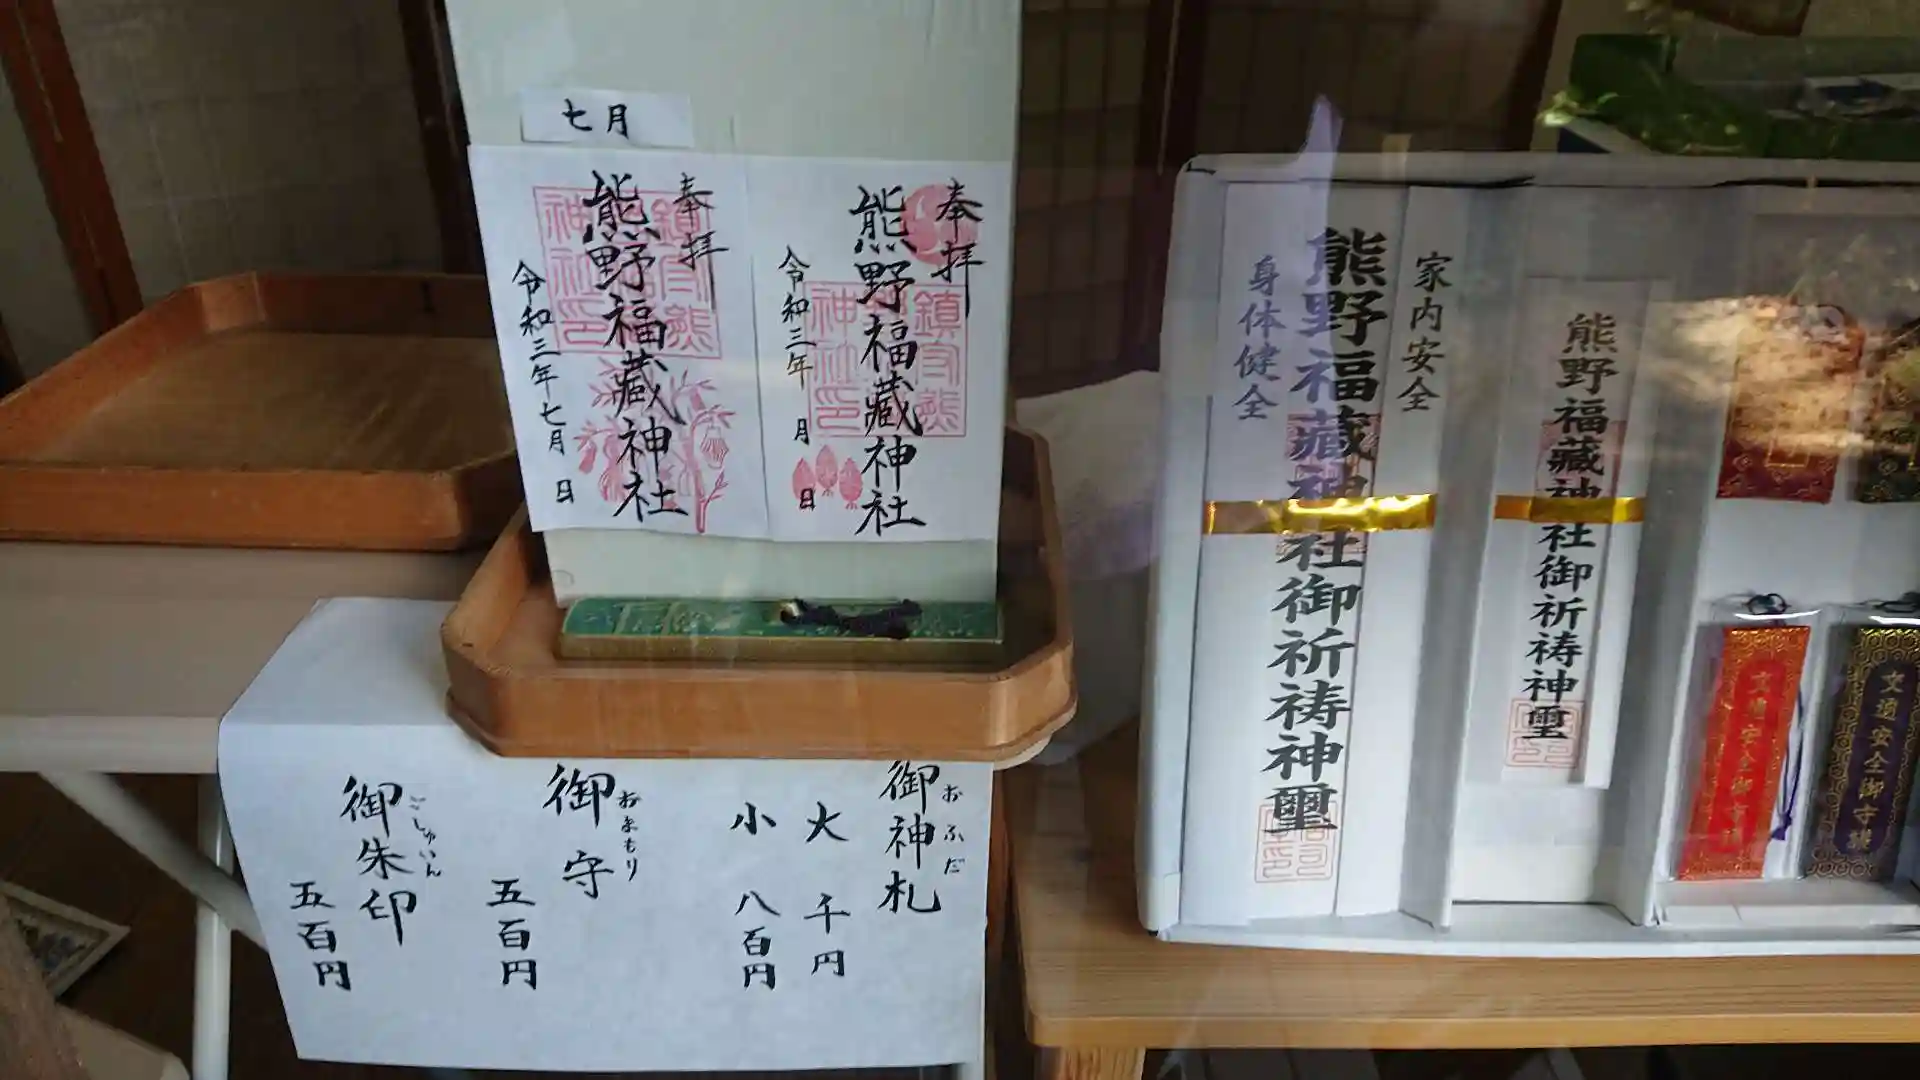 七月
奉拝
熊野福藏神社
令和三年 月 日
奉拝
熊野福藏神社
令和三年七月 日
御神札
おふだ
大 千円
小 八百円
御守
おまもり
五百円
御朱印
ごしゅいん
五百円
家内安全
熊野福藏神社御祈祷神璽
身体健全
熊野福藏神社御祈祷神璽
交通安全御守護
交通安全御守護